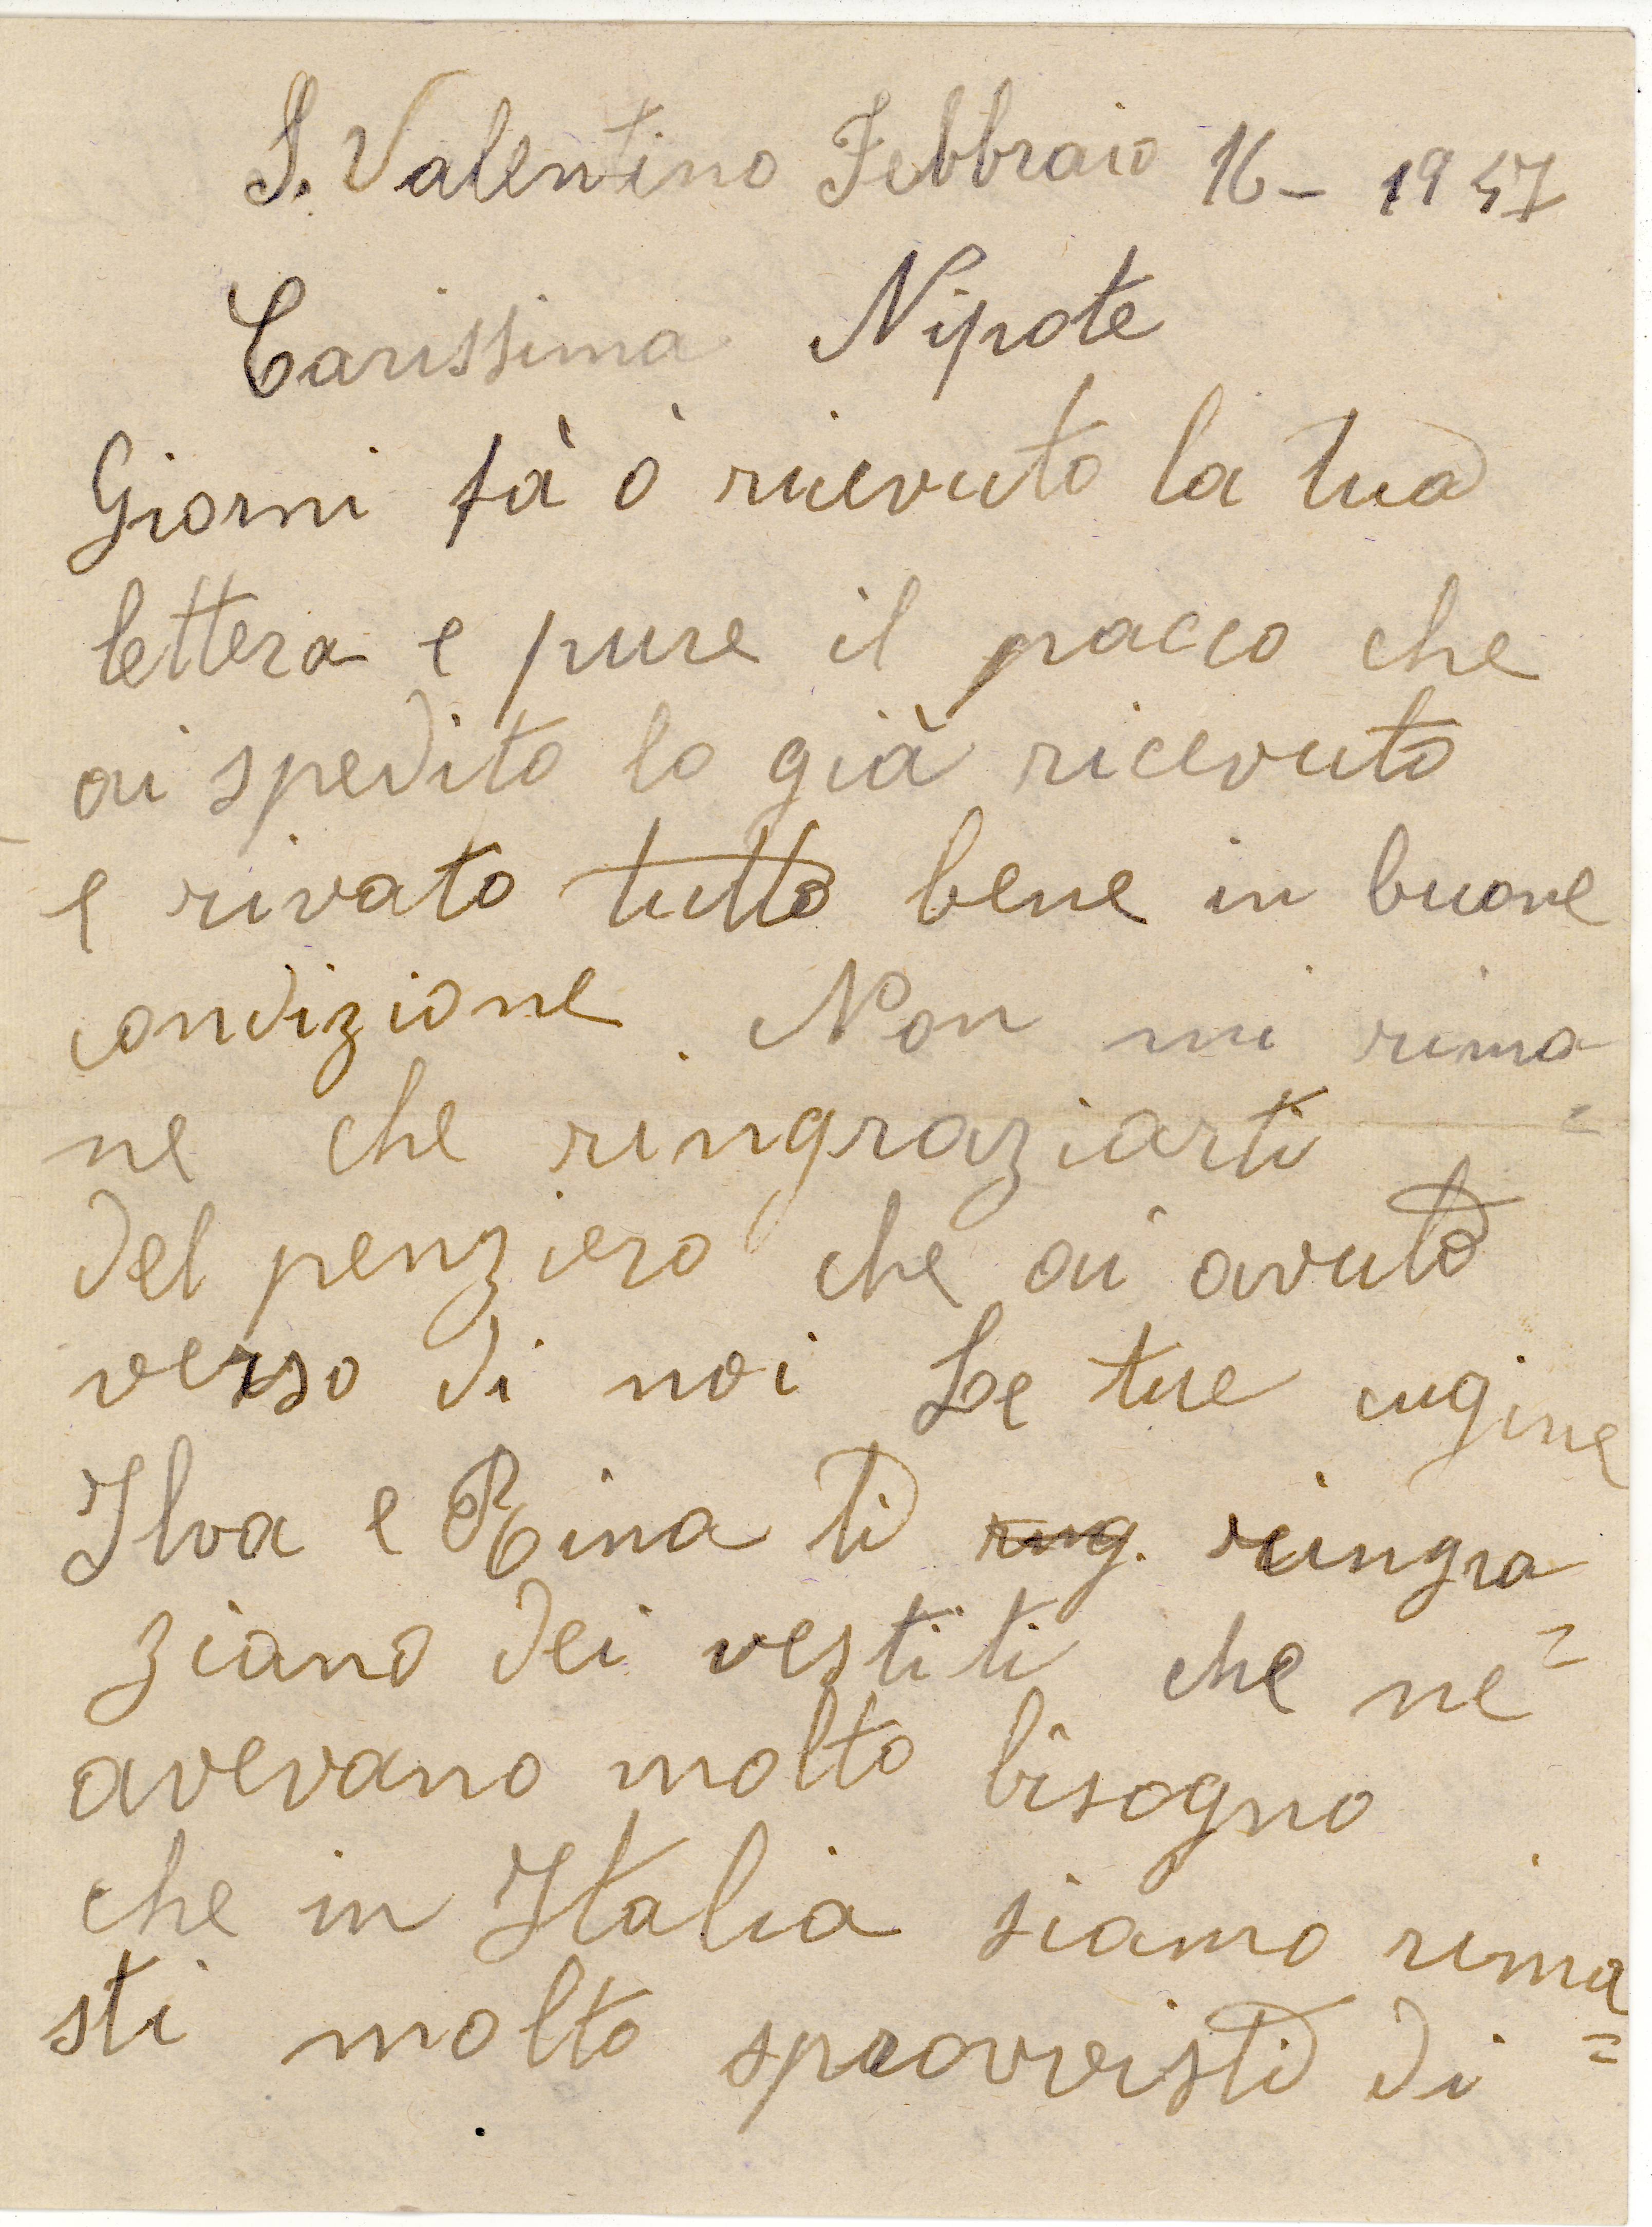 S. Valentino Febbraio 16 - 1947
Carissima Nipote
Giorni fà ò ricevuto la tua
lettera e pure il pacco che
ai spedito lo già ricevuto
e rivato tutto bene in buone
condizione. Non mi rima=
ne che ringraziarti
del penziero che ai avuto
verso di noi Le tue cugine
Ilva e Rina ti ring. ringra=
ziano dei vestiti che ne
avevano molto bisogno
che in Italia siamo rima=
sti molto sprovvisti di